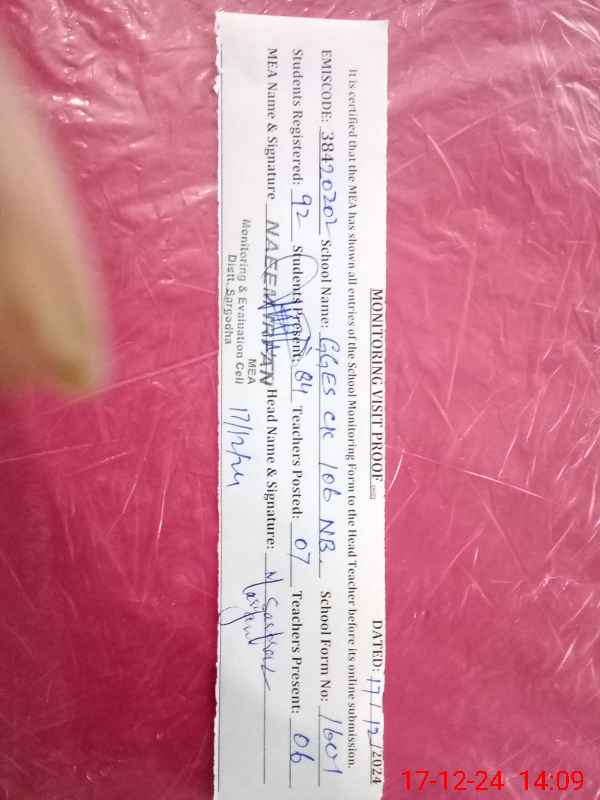 MONITORING VISIT PROOF
DATED: 17 / 12 /2024
It is certified that the MEA has shown all entries of the School Monitoring Form to the Head Teacher before its online submission.
EMISCODE: 38420202 School Name: GGES CK 106 NB. School Form No: 1601
Students Registered: 92 Students Present: 84 Teachers Posted: 07 Teachers Present: 06
MEA Name & Signature NAEEM Head Name & Signature:
MEA
Monitoring & Evaluation Cell
Distt. Sargodha
17/12/24
17-12-24 14:09